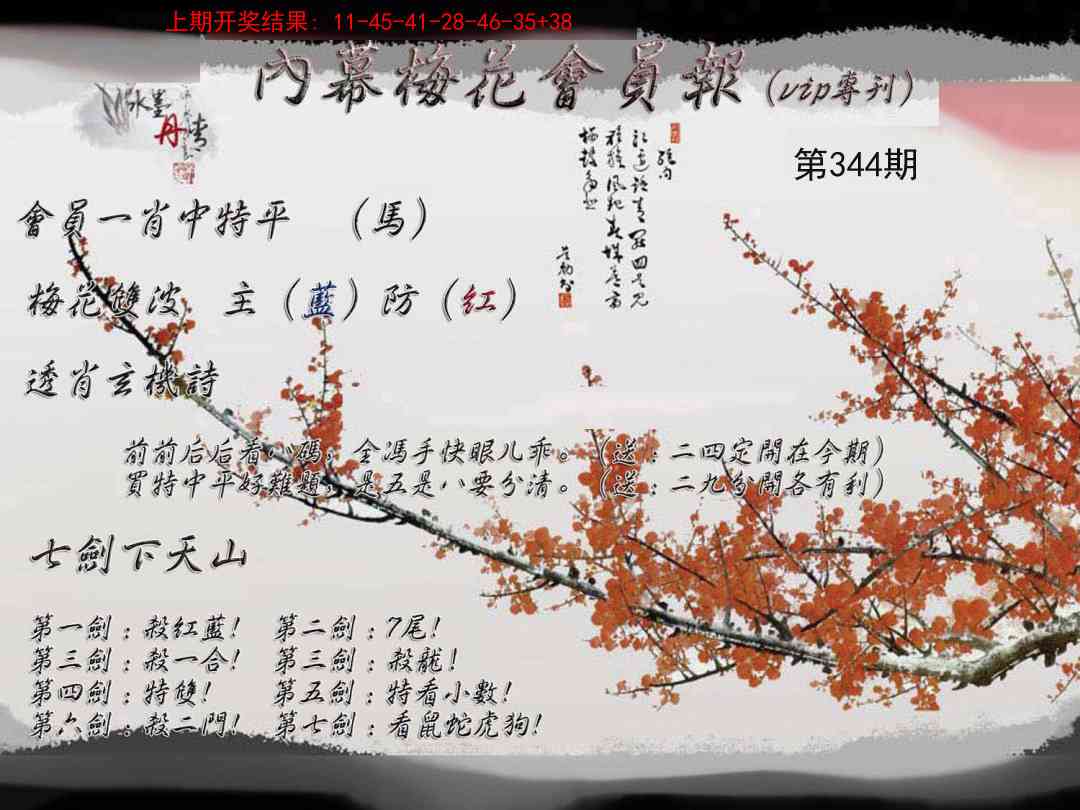 上期开奖结果: 11-45-41-28-46-35+38
內幕梅花會員報(vip專刊)
水墨
丹青
第344期
會員一肖中特平 (馬)
梅花雙波 主(藍)防(紅)
透肖玄機詩
前前后后看八碼,全馮手快眼儿乖。(送:二四定開在今期)
買特中平好難題,是五是八要分清。(送:二九分開各有利)
七劍下天山
第一劍:殺紅藍! 第二劍:7尾!
第三劍:殺一合! 第三劍:殺龍!
第四劍:特雙! 第五劍:特看小數!
第六劍:殺二門! 第七劍:看鼠蛇虎狗!